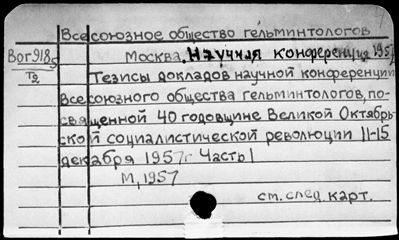 Всесоюзное общество гельминтологов
Вог9185
Т2
Москва, Научная конференция 1957
Тезисы докладов научной конференции
Всесоюзного общества гельминтологов, по-
священной 40 годовщине Великой Октябрь-
ской социалистической революции 11-15
декабря 1957г Часть I
М, 1957
см. след. карт.